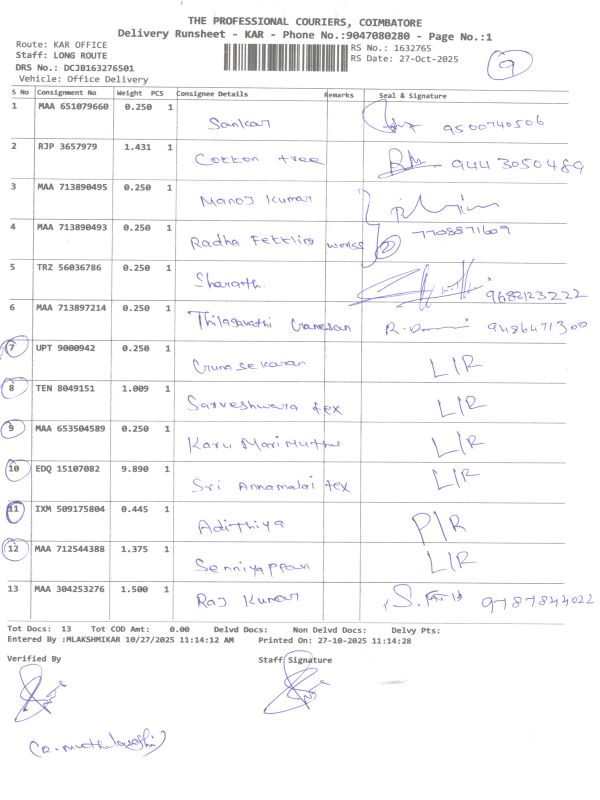 THE PROFESSIONAL COURIERS, COIMBATORE
Delivery Runsheet - KAR - Phone No.:9047080280 - Page No.:1
Route: KAR OFFICE
RS No.: 1632765
Staff: LONG ROUTE
RS Date: 27-Oct-2025
9
DRS No.: DCJB163276501
Vehicle: Office Delivery
S No Consignment No Weight PCS Consignee Details Remarks Seal & Signature
1 MAA 651079660 0.250 1 Sankar 9500740506
2 RJP 3657979 1.431 1 Cotton tree 9443050489
3 MAA 713890495 0.250 1 Manoj Kumar
4 MAA 713890493 0.250 1 Radha Fettling works 2 7708871609
5 TRZ 56036786 0.250 1 Sharath. 9682123222
6 MAA 713897214 0.250 1 Thilagavathi Ganesan 9486471300
7 UPT 9000942 0.250 1 Gunasekaran L/R
8 TEN 8049151 1.009 1 Sarveshwara tex L/R
9 MAA 653504589 0.250 1 Karu Mari Muthu L/R
10 EDQ 15107082 9.890 1 Sri Annamalai tex L/R
11 IXM 509175804 0.445 1 Adithiya P/R
12 MAA 712544388 1.375 1 Senniyappan L/R
13 MAA 304253276 1.500 1 Raj Kumar 9787844022
Tot Docs: 13 Tot COD Amt: 0.00 Delvd Docs: Non Delvd Docs: Delvy Pts:
Entered By :MLAKSHMIKAR 10/27/2025 11:14:12 AM Printed On: 27-10-2025 11:14:28
Verified By Staff Signature